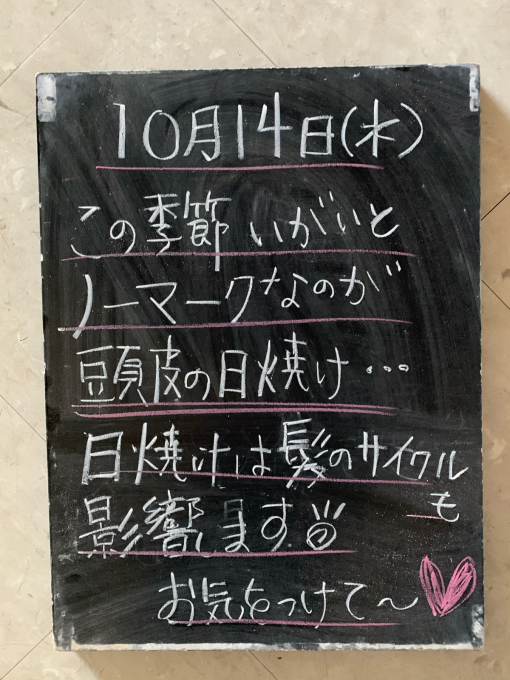 10月14日(水)
この季節 いがいと
ノーマークなのが
頭皮の日焼け…
日焼けは髪のサイクル
も
影響します
お気をつけて〜